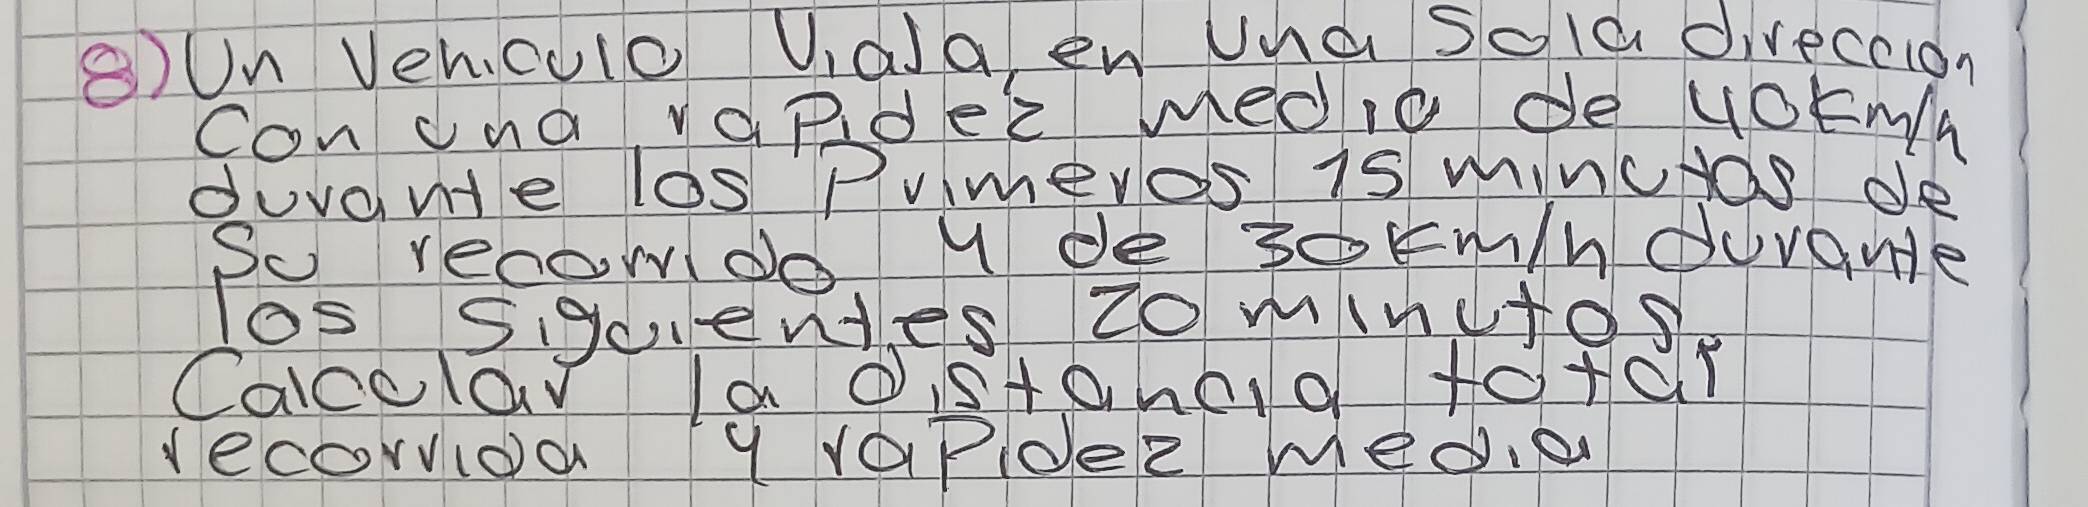 8) Un Vehiculo Viaja, en una Sola direccion
Con una rapidez media de 40km/h
durante los Primeros 15 minutos de
Su recorrido y de 30km/h durante
los siguientes 20 minutos.
Calcular la distancia total
recorrida y rapidez media